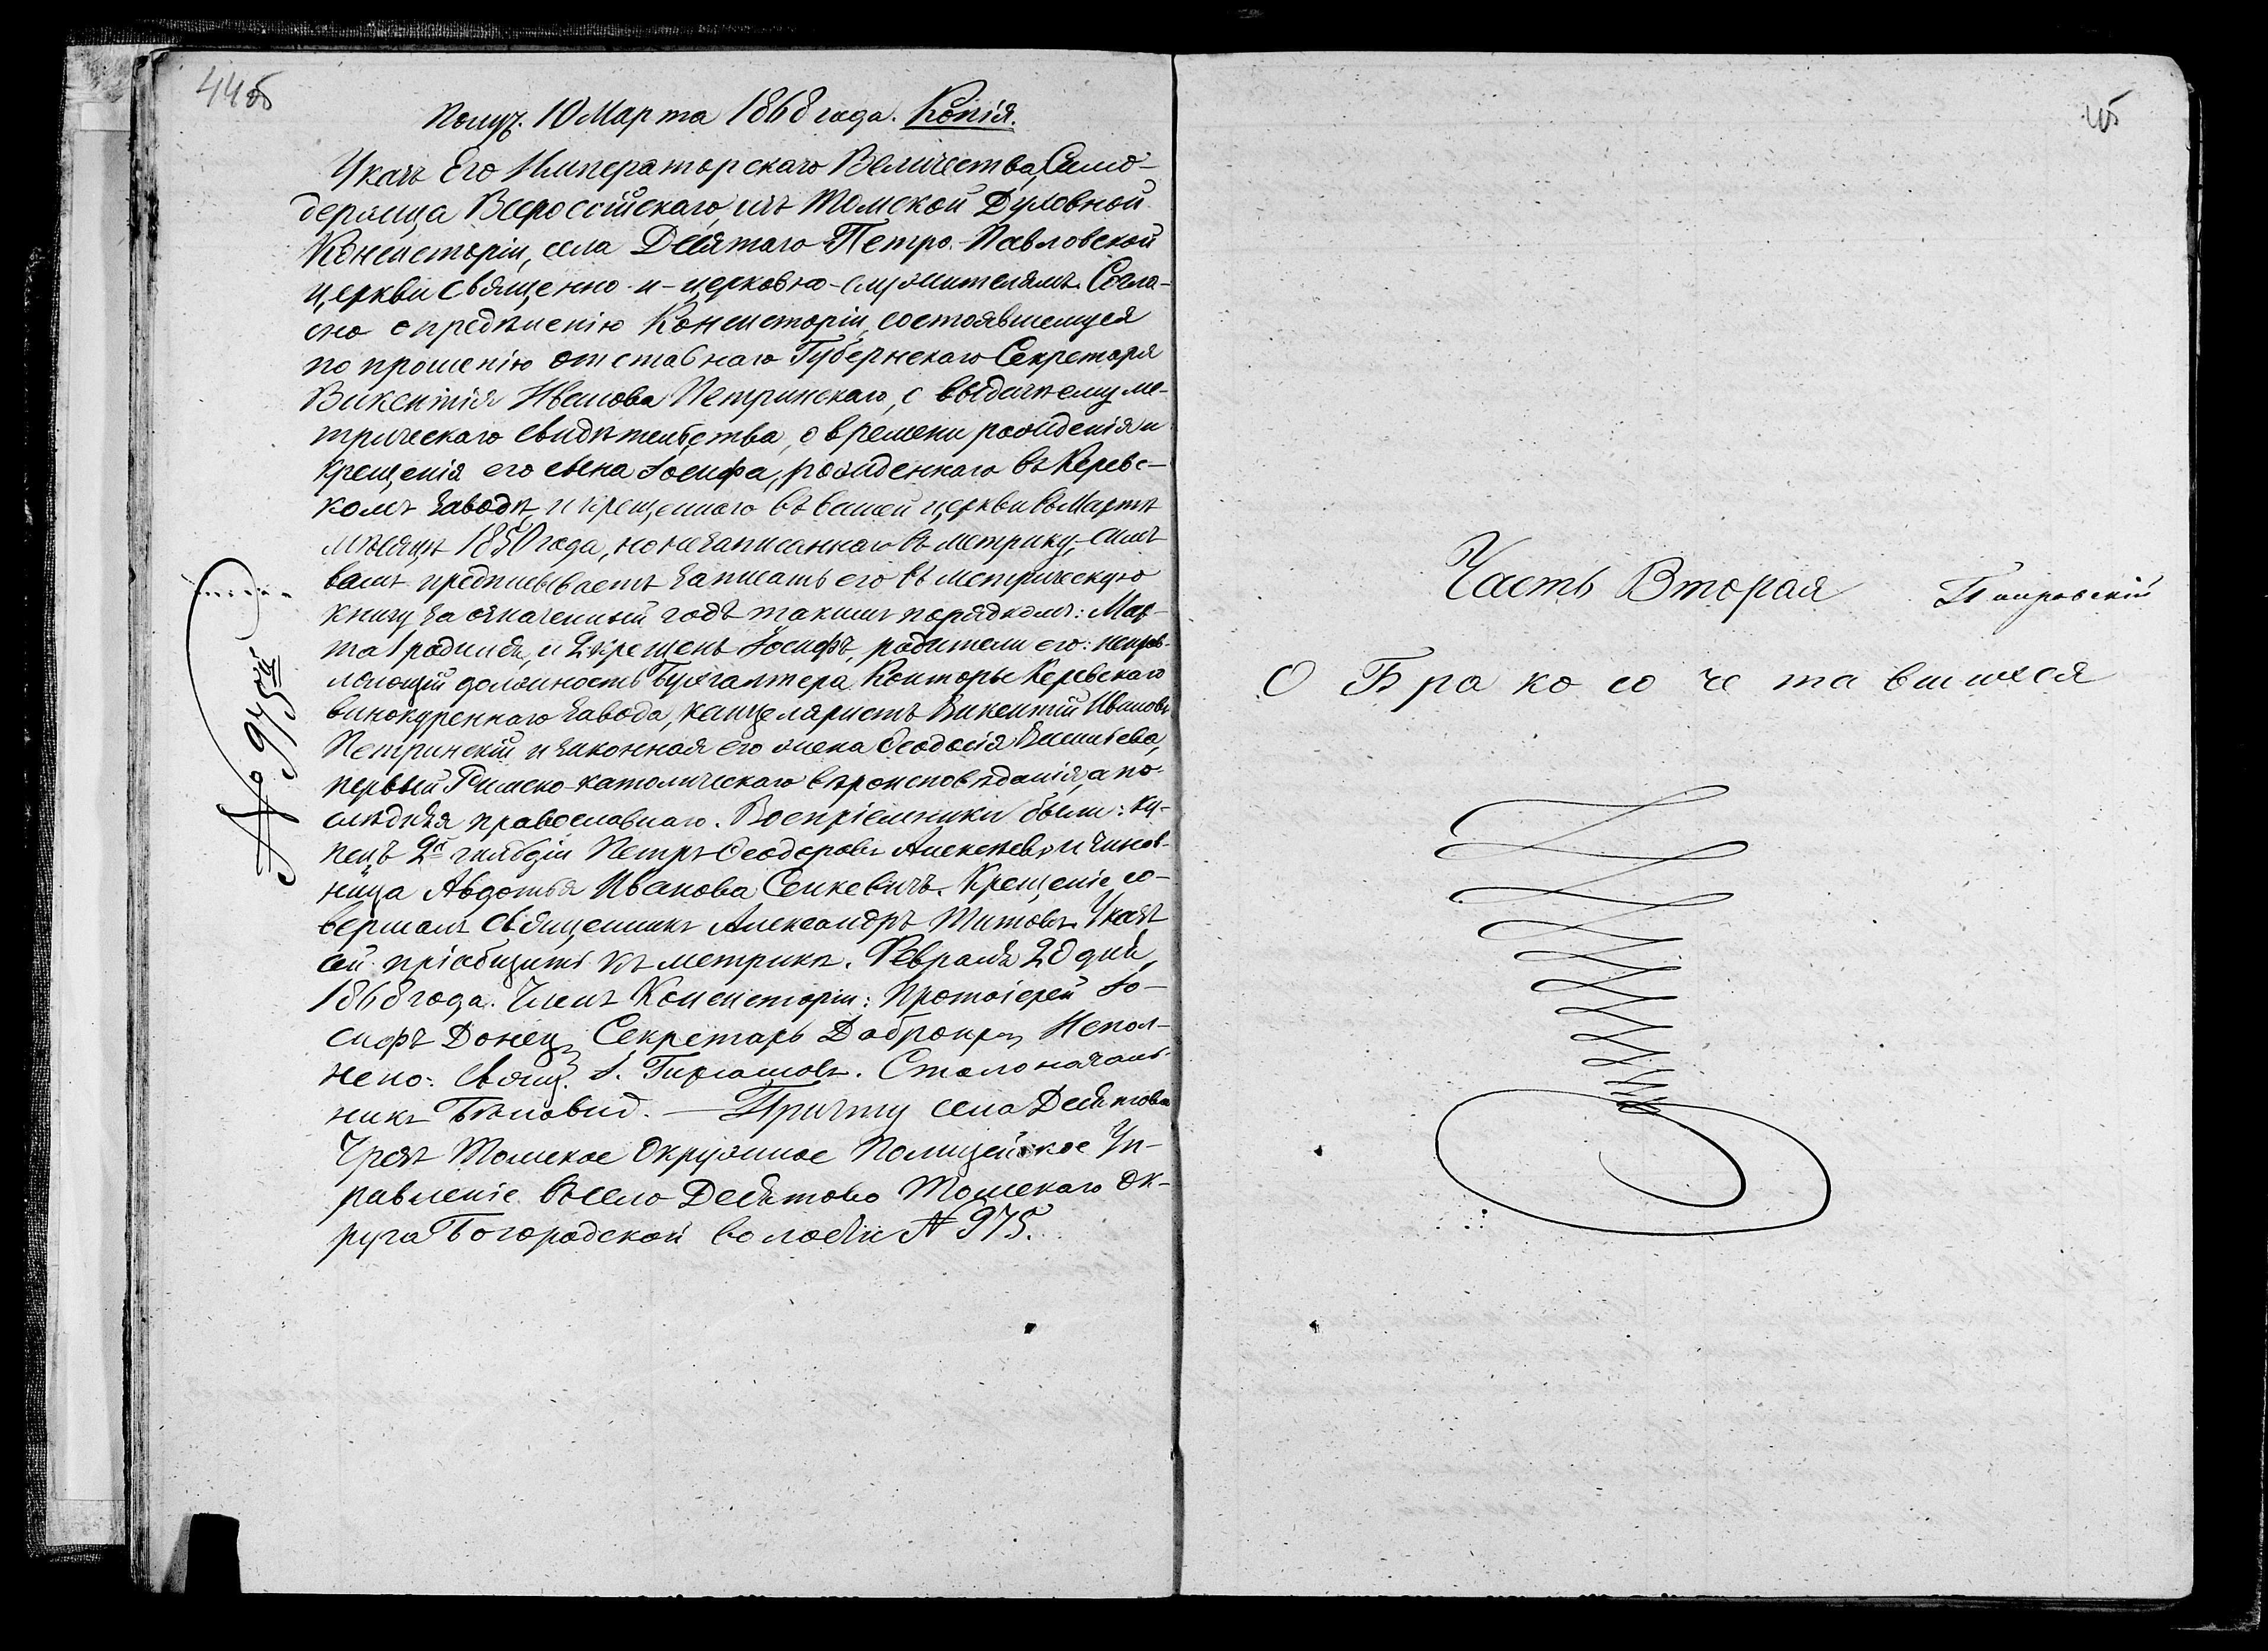 44об
Получ. 10 Марта 1868 года. Копія.
Указъ Его Императорскаго Величества, Само-
держца Всероссійскаго, изъ Томской Духовной
Консисторіи, села Десятаго Петро-Павловской
церкви священно-и-церковно-служителямъ. Согла-
сно опредѣленію Консисторіи, состоявшемуся
по прошенію отставнаго Губернскаго Секретаря
Викентія Иванова Петринскаго, о выдачѣ ему ме-
трическаго свидѣтельства, о времени рожденія и
крещенія его сына Іосифа, рожденнаго въ Керевс-
комъ заводѣ, и крещеннаго въ вашей церкви въ Мартѣ
мѣсяцѣ 1850 года, но не записаннаго въ метрику, симъ
вамъ предписываетъ записать его въ метрическую
книгу за означенный годъ такимъ порядкомъ: Мар-
та 1 родился, и 2 крещенъ Іосифъ, родители его: исправ-
ляющій должность Бухгалтера Конторы Керевскаго
винокуреннаго завода, канцеляристъ Викентій Ивановъ
Петринскій и законная его жена Ѳеодосія Васильева,
первый Римско-католическаго вѣроисповѣданія, а по-
слѣдняя православнаго. Воспріемники были: ку-
пецъ 2й гильдіи Петръ Ѳеодоровъ Алексѣевъ, и чинов-
ница Авдотья Иванова Сенкевичъ. Крещеніе со-
вершалъ священникъ Александръ Титовъ. Указъ
сей пріобщить къ метрикѣ. Февраля 28 дня,
1868 года. Членъ Консисторіи: Протоіерей Іо-
сифъ Донец. Секретарь Доброкр. Испол-
нено: Свящ. І. Гирсамовъ. Столоначаль-
никъ Бѣловид. — Причту села Десятова
Чрезъ Томское Окружное Полицейское Уп-
равленіе. Въ село Десятово Томскаго Ок-
руга Богородской волости № 975.
№ 975й
45
Часть Вторая
О Бракосочетавшихся